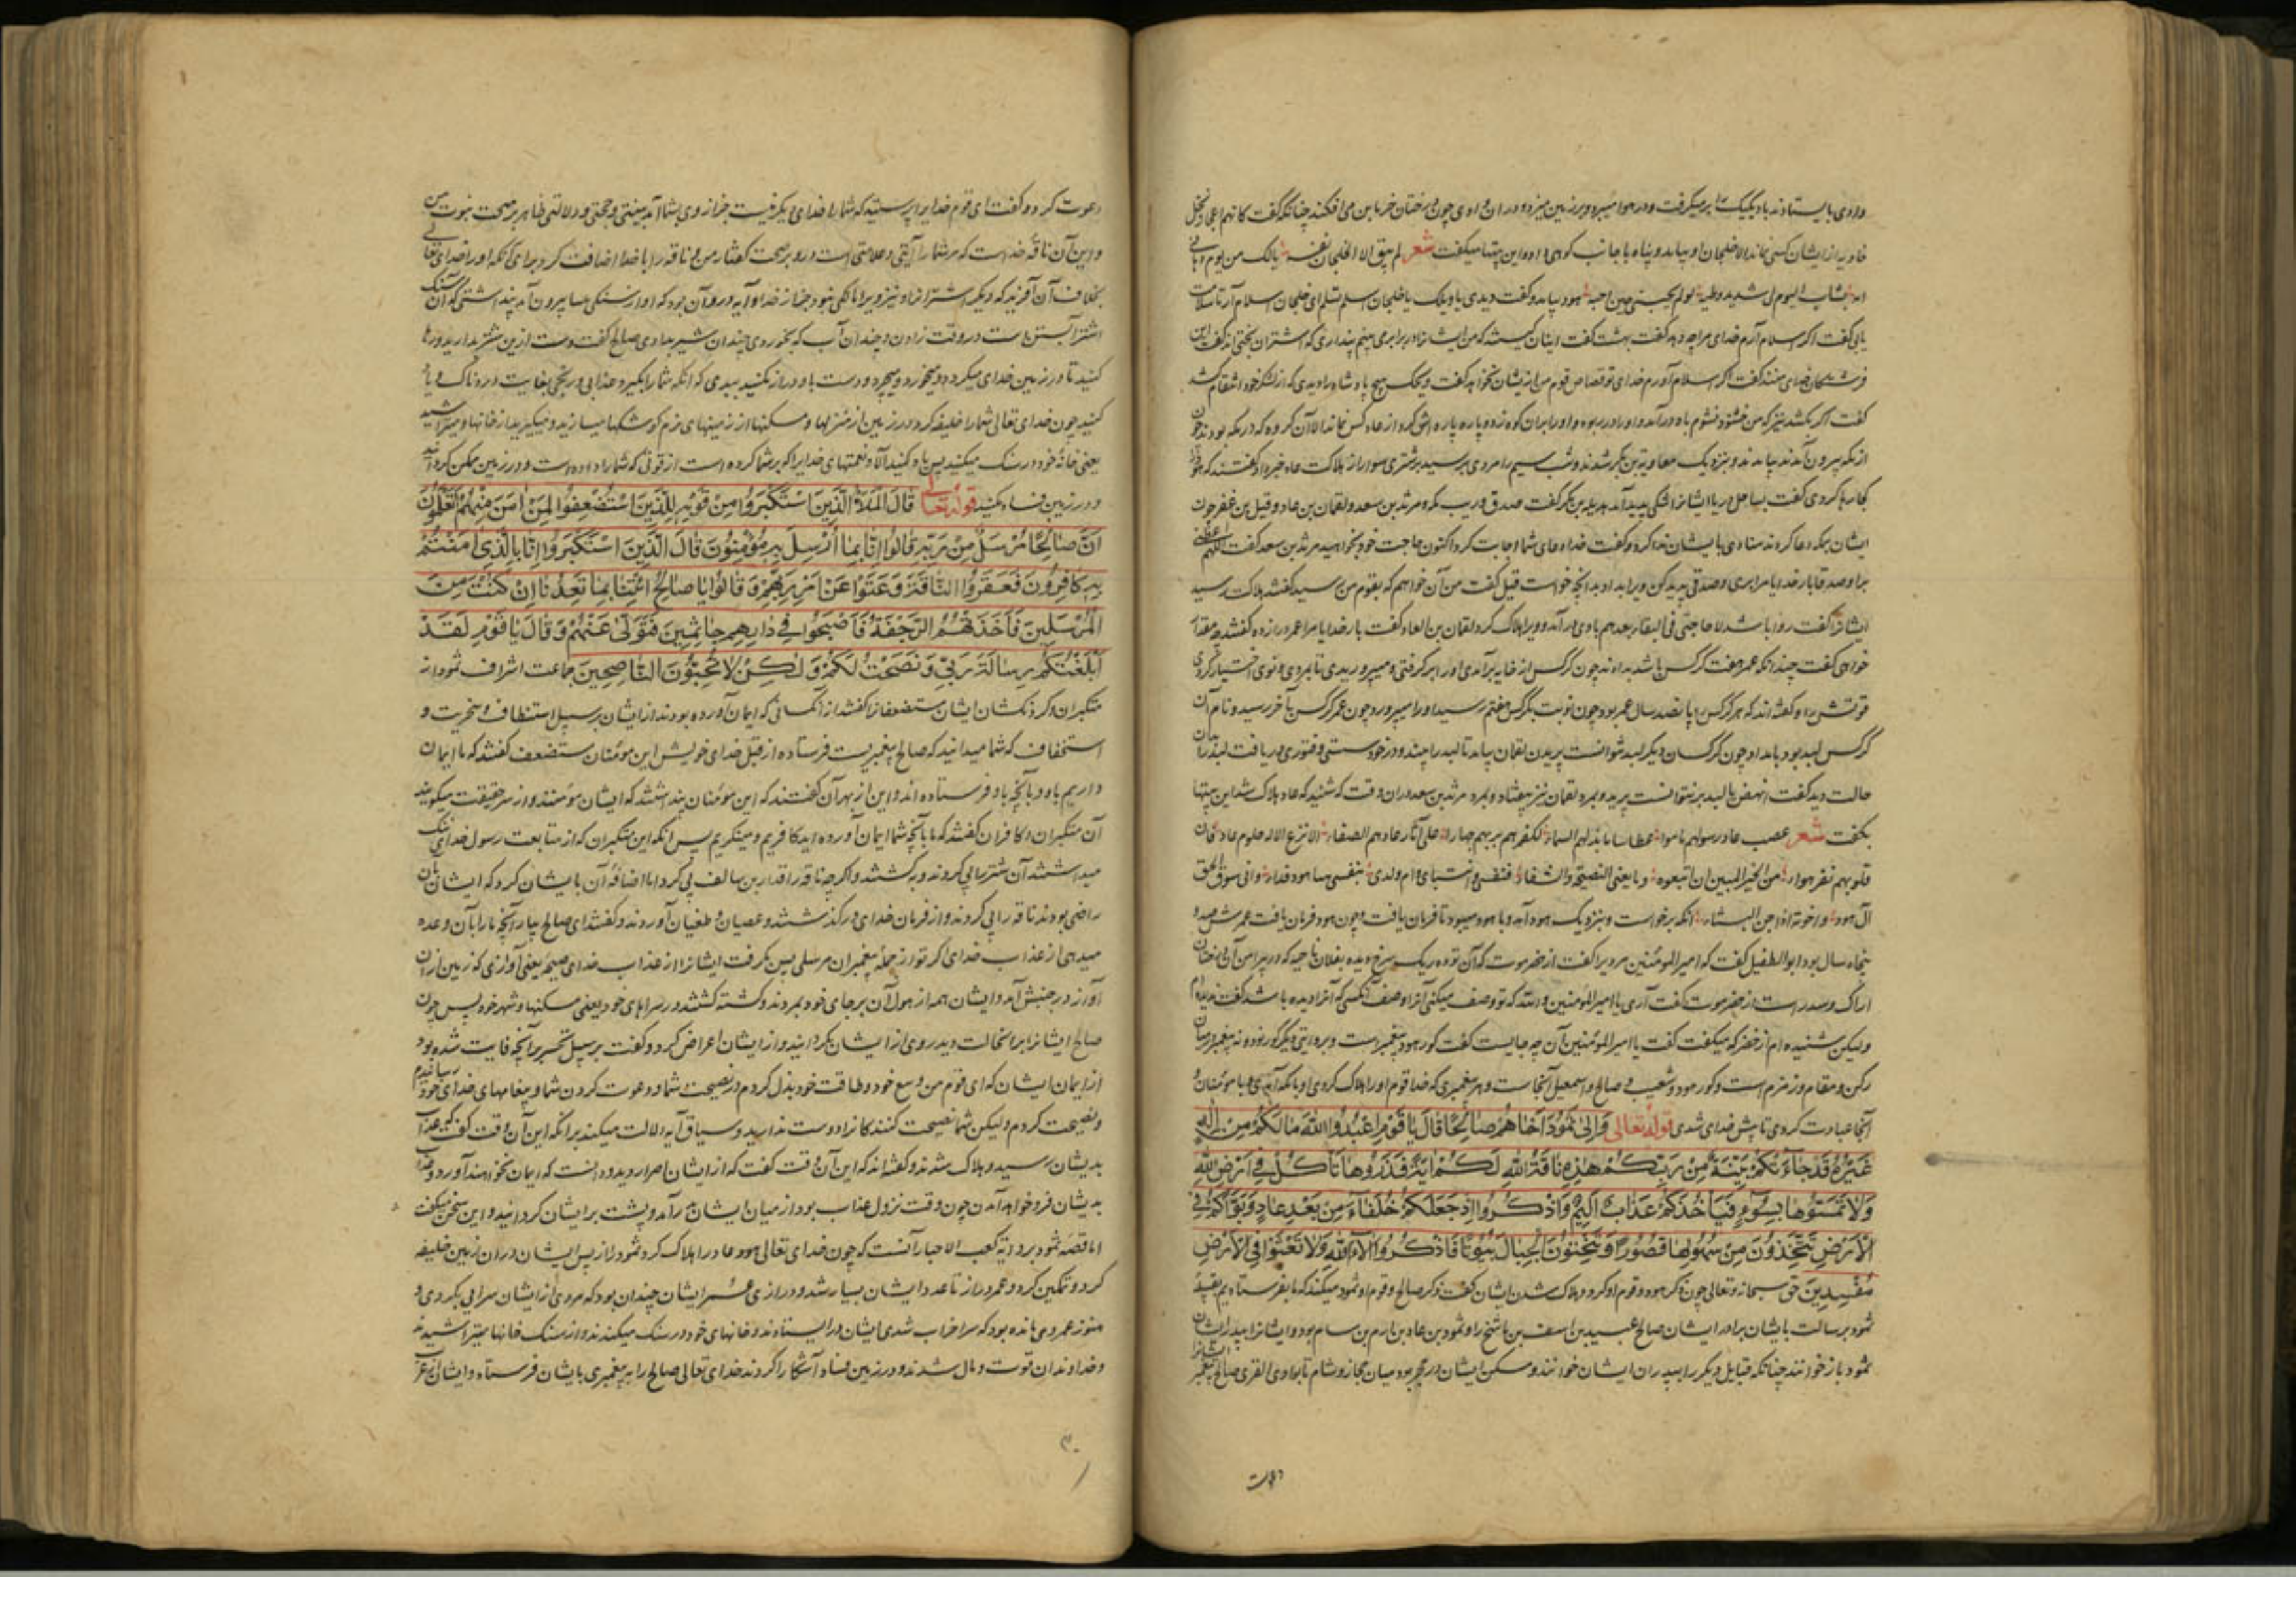 وادی بایستادند باد یکیک را برمیگرفت و در هوا میبرد و بر زمین میزد و در ان وادی چون درختان خرما بن می افکند چنانکه گفت کانهم اعجاز نخل
خاویه از ایشان کسی نماند الا خلجان او بیامد و پناه با جانب کوهی داد و این بیتها میگفت شعر لم یبق الا الخلجان نفسه یالک من یوم دهانی
امسه بثابت الیوم شدید وطئه لو لم یجئنی جئته اجسه هود بیامد و گفت ویحک یا خلجان اسلم تسلم ای خلجان اسلام آر تا سلامت
یابی گفت اگر اسلام آرم خدای مرا چه دهد گفت بهشت گفت اینان کیستند که من ایشانرا در ابر می بینم پنداری که اشتران بختی اند گفت این
فرشتگان خدای منند گفت اگر اسلام آورم خدای تو قصاص قوم من از ایشان بخواهد گفت ویحک هیچ پادشاه را دیدی که از لشکر خود انتقام کشد
گفت اگر بکشد نیز که من خشنود نشوم باد درآمد و او را در ربود و او را بر ان کوه زد و پاره پاره اش کرد از عاد کس نماند الا آن گروه که در مکه بودند چون
از مکه بیرون آمدند بیامدند و بنزدیک معاویة بن بکر شدند و شب سیم را مردی برسید بر شتری سوار از هلاکت عاد خبر داد گفتند که هود را
کجا رها کردی گفت بساحل دریا ایشانرا شکی پدید آمد هذیله بن بکر گفت صدق و رب مکه و مرثد بن سعد و لقمان بن عاد و قیل بن عنز چون
ایشان بمکه دعا کردند منادی با ایشان ندا کرد و گفت خدا دعای شما اجابت کرد اکنون حاجت خود بخواهید مرثد بن سعد گفت اللهم اعطنی
برا و صدقا بار خدایا مرا بری و صدقی پدید کن ویرا بداد بدانچه خواست قیل گفت من آن خواهم که بقوم من رسید گفتند هلاکت رسید
ایشانرا گفت روا باشد لا حاجة لی فی البقاء بعدهم بادی درآمد و ویرا هلاک کرد و لقمان بن العاد گفت بار خدایا مرا عمر دراز ده گفتند چه مقدار
خواهی گفت چندانکه عمر هفت کرکس باشد بدادند چون کرکس از خایه برآمدی او را برگرفتی و میپروریدی تا بمردی و نوی اختیار کردی
قوتش بده و گفته اند که هر کرکس را پانصد سال عمر بود چون نوبت بکرکس هفتم رسید او را میپرورد چون عمر کرکس بآخر رسید و نام آن
کرکس لبد بود بامداد چون کرکسان دیگر لبد نتوانست پریدن لقمان بیامد تا لبد را پیند و در خود سستی و فتوری دریافت لبد را بدان
حالت دید گفت انهض یا لبد بر نتوانست پرید و بمرد لقمان نیز بیفتاد و بمرد مرثد بن سعد دران وقت که شنید که عاد هلاک شد این بیتها
بگفت شعر عصت عاد رسولهم فامسوا عطاشا ما تبلهم السماء لکفرهم بربهم جهارا علی آثار عادهم العفاء الا نزع الاله حلوم عاد فان
قلوبهم قفر هواء من الخبر المبین ان تعوه و ما یغنی النصیحة والشفاء فنفسی وابنتای وام ولدی لنفس نبینا هود فداء وانی سوف الحق
آل هود واخوته اذا جن المساء آنکه برخواست و بنزدیک هود آمد و با هود میبود تا فرمان یافت و چون هود فرمان یافت عمرش صد و
پنجاه سال بود ابو الطفیل گفت که امیر المؤمنین مردیرا گفت از حضرموت که آن توده ریک سرخ دیده بفلان ناحیه که در پیرامن آن درختان
اراک و سدر است از حضرموت گفت آری یا امیر المؤمنین والله که تو وصف میکنی آنرا وصف آنکسی که آنرا دیده باشد گفت ندیده ام
ولیکن شنیده ام از خضر که میگفت گفت یا امیر المؤمنین آن چه جایست گفت گور هود پیغمبر است و بروایتی دیگر گور نود و نه پیغمبر میان
رکن و مقام و زمزم است و گور هود و شعیب و صالح و اسمعیل آنجاست و هر پیغمبری که خدا قوم او را هلاک کردی او بمکه آمدی و با مؤمنان
آنجا عبادت کردی تا پیش خدای شدی قوله تعالی وَاِلیٰ ثَمُودَ اَخَاهُمْ صَالِحًا قَالَ یَا قَوْمِ اعْبُدُوا اللّٰهَ مَا لَکُمْ مِنْ اِلٰهٍ
غَیْرُهُ قَدْ جَاءَتْکُمْ بَیِّنَةٌ مِنْ رَبِّکُمْ هٰذِهِ نَاقَةُ اللّٰهِ لَکُمْ اٰیَةً فَذَرُوهَا تَأْکُلْ فِی اَرْضِ اللّٰهِ
وَلَا تَمَسُّوهَا بِسُوءٍ فَیَأْخُذَکُمْ عَذَابٌ اَلِیمٌ وَاذْکُرُوا اِذْ جَعَلَکُمْ خُلَفَاءَ مِنْ بَعْدِ عَادٍ وَبَوَّاَکُمْ فِی
الْاَرْضِ تَتَّخِذُونَ مِنْ سُهُولِهَا قُصُورًا وَتَنْحِتُونَ الْجِبَالَ بُیُوتًا فَاذْکُرُوا اٰلَاءَ اللّٰهِ وَلَا تَعْثَوْا فِی الْاَرْضِ
مُفْسِدِینَ حق سبحانه و تعالی چون ذکر هود و قوم او کرد و هلاک شدن ایشان گفت ذکر صالح و قوم او ثمود میکند که ما بفرستادیم بقبیله
ثمود برسالت بایشان برادر ایشان صالح عبید بن اسف بن ماشخ را و ثمود بن عاد بن ارم بن سام بود و ایشانرا بپدر ایشان
ثمود بازخوانند چنانکه قبایل دیگر را بپدران ایشان خوانند و مسکن ایشان در حجر بود میان حجاز و شام تا بوادی القری صالح پیغمبر ایشانرا
دعوت
دعوت کرد و گفت ای قوم خدایرا پرستید که شما را خدای دیگر نیست جز از وی بشما آمد بینتی و حجتی و دلالتی ظاهر بر صحت نبوت من
و این آن ناقه خداست که مر شما را آیتی و علامتی است درو بر صحت گفتار من و ناقه را با خدا اضافت کرد برای آنکه او را خدای تعالی
بخلاف آن آفرید که دیگر اشترانرا و نیز ویرا مالکی نبود جز از خدا و آیه درو آن بود که او از سنگی ملسا بیرون آمد پنداشتی که آن سنگ
اشتر آبستن است در وقت زادن و چندان آب که بخوردی چندان شیر بدادی صالح گفت دست ازین شتر بدارید و رها
کنید تا در زمین خدای میگردد و میخورد و میچرد و دست باو دراز مکنید ببدی که آنگه شما را بگیرد عذابی و رنجی بغایت دردناک و یاد
کنید چون خدای تعالی شما را خلیفه کرد در زمین از منزلها و مسکنها از زمینهای نرم کوشکها میسازید و میگیرید از خانها و میتراشید
یعنی خانه خود در سنگ میکنید پس یاد کنید آلا و نعمتهای خدایرا که بر شما کرده است از قوتی که شما را داده است و در زمین ممکن کرد آید
و در زمین فساد مکنید قوله تعالی قَالَ الْمَلَأُ الَّذِینَ اسْتَکْبَرُوا مِنْ قَوْمِهِ لِلَّذِینَ اسْتُضْعِفُوا لِمَنْ اٰمَنَ مِنْهُمْ اَتَعْلَمُونَ
اَنَّ صَالِحًا مُرْسَلٌ مِنْ رَبِّهِ قَالُوا اِنَّا بِمَا اُرْسِلَ بِهِ مُؤْمِنُونَ قَالَ الَّذِینَ اسْتَکْبَرُوا اِنَّا بِالَّذِی اٰمَنْتُمْ
بِهِ کَافِرُونَ فَعَقَرُوا النَّاقَةَ وَعَتَوْا عَنْ اَمْرِ رَبِّهِمْ وَقَالُوا یَا صَالِحُ ائْتِنَا بِمَا تَعِدُنَا اِنْ کُنْتَ مِنَ
الْمُرْسَلِینَ فَاَخَذَتْهُمُ الرَّجْفَةُ فَاَصْبَحُوا فِی دَارِهِمْ جَاثِمِینَ فَتَوَلّٰی عَنْهُمْ وَقَالَ یَا قَوْمِ لَقَدْ
اَبْلَغْتُکُمْ رِسَالَةَ رَبِّی وَنَصَحْتُ لَکُمْ وَلٰکِنْ لَا تُحِبُّونَ النَّاصِحِینَ جماعت اشراف ثمود از
متکبران و گردنکشان ایشان مستضعفانرا گفتند از آنکسانی که ایمان آورده بودند از ایشان بر سبیل استنطاف و سخریت و
استخفاف که شما میدانید که صالح پیغمبریست فرستاده از قبل خدای خویش این مؤمنان مستضعف گفتند که ما ایمان
داریم باو و بآنچه باو فرستاده اند و این از بهر آن گفتند که این مؤمنان پنداشتند که ایشان مؤمنند و از سر حقیقت میگویند
آن متکبران و کافران گفتند که ما بآنچه شما ایمان آورده اید کافریم و مینکریم پس آنکه این متکبران که از متابعت رسول خدای ننگ
میداشتند آن شتر را پی کردند و بکشتند و اگر چه ناقه را قدار بن سالف پی کرد اما اضافه آن بایشان کرد که ایشان بآن
راضی بودند ناقه را پی کردند و از فرمان خدای درگذشتند و عصیان و طغیان آوردند و گفتند ای صالح بیار آنچه ما را بآن وعده
میدهی از عذاب خدای اگر تو از جمله پیغمبران مرسلی پس بگرفت ایشانرا از عذاب خدای صیحه یعنی آوازی که زمین از ان
آواز در جنبش آمد و ایشان همه از هول آن بر جای خود بمردند و کشته گشتند در سراهای خود یعنی مسکنها و شهر خود پس چون
صالح ایشانرا بر انحالت دید روی از ایشان بگردانید و از ایشان اعراض کرد و گفت بر سبیل تحسر بر آنچه فایت شده بود
از ایمان ایشان که ای قوم من وسع خود و طاقت خود بذل کردم در نصیحت شما و دعوت کردن شما و پیغامهای خدای خود رسانیدم
و نصیحت کردم ولیکن شما نصیحت کنندگانرا دوست ندارید و سیاق آیه دلالت میکند بر آنکه این آن وقت گفت که عذاب
بدیشان رسید و هلاک شدند و گفته اند که این آن وقت گفت که از ایشان اصرار دید و دانست که ایمان نخواهند آورد و عذاب
بدیشان فرو خواهد آمدن چون وقت نزول عذاب بود از میان ایشان برآمد و پشت بر ایشان گردانید و این سخن میگفت
اما قصه ثمود بروایة کعب الاحبار آنست که چون خدای تعالی هود عاد را هلاک کرد ثمود را از پس ایشان دران زمین خلیفه
کرد و تمکین کرد و عمر دراز تا عدد ایشان بسیار شد و درازی عمر ایشان چندان بود که مردی از ایشان سرایی بکردی و
هنوز عمر وی مانده بود که سرا خراب شدی ایشان در ایستادند و خانهای خود در سنگ میکندند و از سنگ خانها میتراشیدند
و خداوندان قوت و مال شدند و در زمین فساد آشکارا کردند خدای تعالی صالح را به پیغمبری بایشان فرستاد و ایشان از عرب